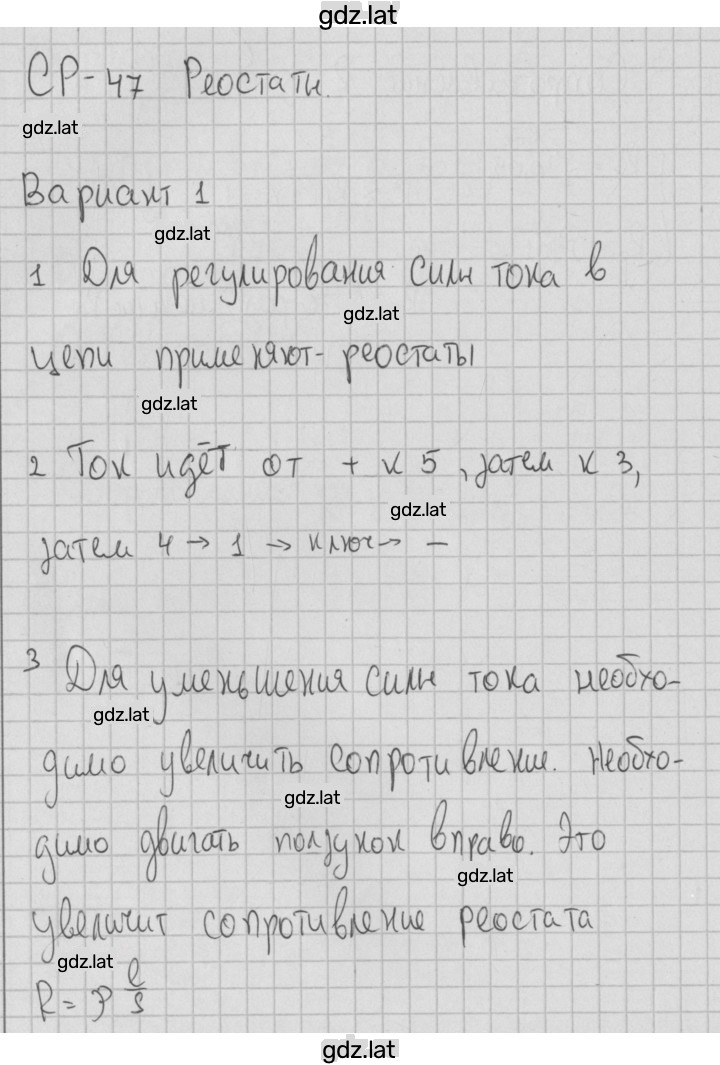 gdz.lat
СР-47 Реостаты.
gdz.lat
Вариант 1
gdz.lat
1 Для регулирования силы тока в
gdz.lat
цепи применяют- реостаты
gdz.lat
2 Ток идёт от + к 5, затем к 3,
gdz.lat
затем 4 → 1 → ключ → −
3 Для уменьшения силы тока необхо-
gdz.lat
димо увеличить сопротивление. Необхо-
gdz.lat
димо двигать ползунок вправо. Это
gdz.lat
увеличит сопротивление реостата
gdz.lat
R = ρ l/S
gdz.lat